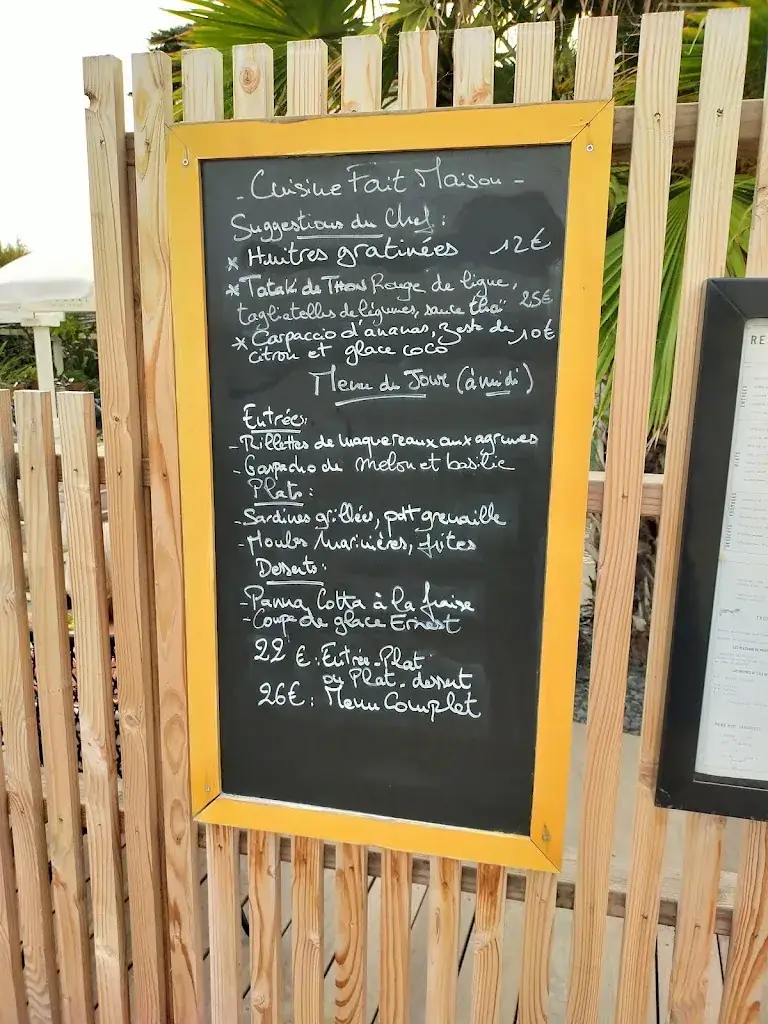 - Cuisine Fait Maison -
Suggestions du Chef :
* Huitres gratinées 12€
* Tataki de Thon Rouge de ligne,
tagliatelles de légumes, sauce thaï 25€
* Carpaccio d'ananas, zeste de 10€
citron et glace coco
Menu du Jour (à midi)
Entrées:
- Rillettes de maquereaux aux agrumes
- Gaspacho de melon et basilic
Plats :
- Sardines grillées, pdt grenaille
- Moules Marinières, frites
Desserts :
- Panna Cotta à la fraise
- Coupe de glace Ernest
22 € : Entrée-Plat
ou Plat-dessert
26€ : Menu Complet